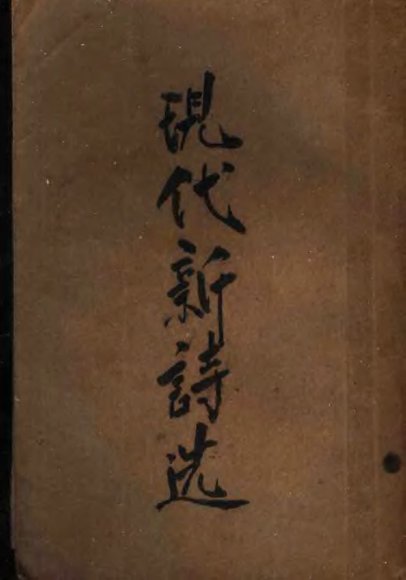 現代新詩选